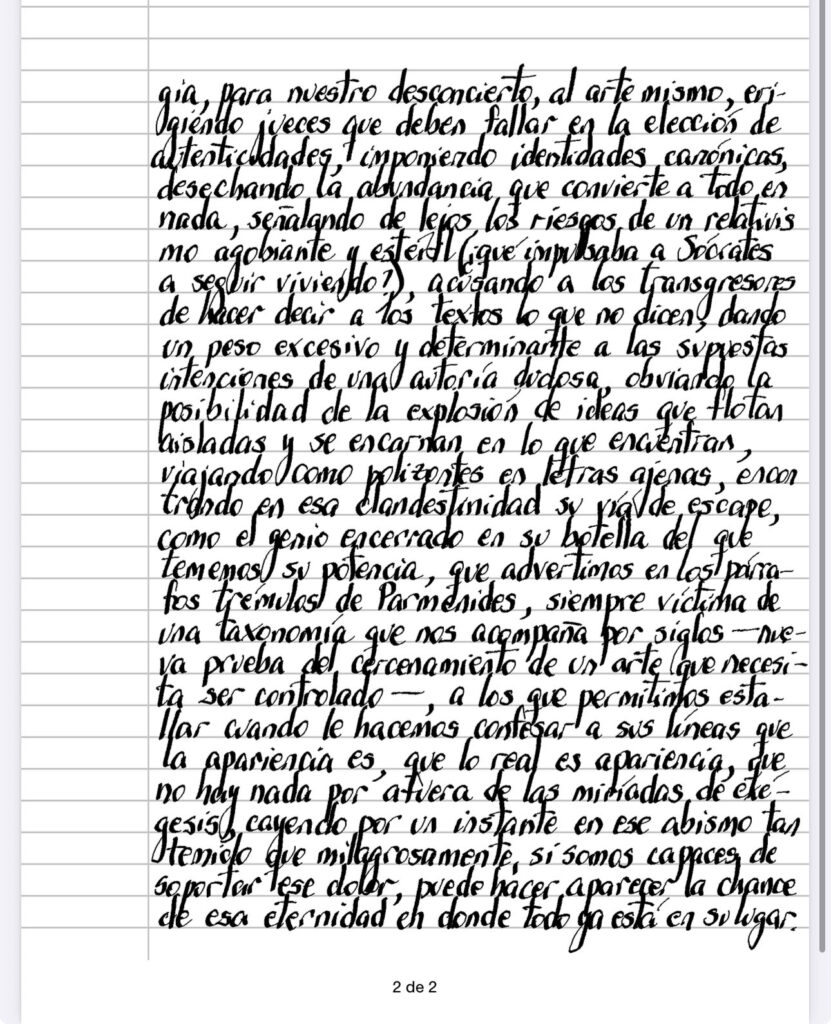 gia, para nuestro desconcierto, al arte mismo, eri-
giendo jueces que deben fallar en la elección de
autenticidades, imponiendo identidades canónicas,
desechando la abundancia que convierte a todo en
nada, señalando de lejos los riesgos de un relativis
mo agobiante y estéril (¿qué impulsaba a Sócrates
a seguir viviendo?), acusando a los transgresores
de hacer decir a los textos lo que no dicen, dando
un peso excesivo y determinante a las supuestas
intenciones de una autoría dudosa, obviando la
posibilidad de la explosión de ideas que flotan
aisladas y se encarnan en lo que encuentran,
viajando como polizontes en letras ajenas, encon
trando en esa clandestinidad su vía de escape,
como el genio encerrado en su botella del que
tememos su potencia, que advertimos en los párra-
fos trémulos de Parménides, siempre víctima de
una taxonomía que nos acompaña por siglos —nue-
va prueba del cercenamiento de un arte que necesi-
ta ser controlado—, a los que permitimos esta-
llar cuando le hacemos confesar a sus líneas que
la apariencia es, que lo real es apariencia, que
no hay nada por afuera de las miríadas de exé-
gesis, cayendo por un instante en ese abismo tan
temido que milagrosamente, si somos capaces de
soportar ese dolor, puede hacer aparecer la chance
de esa eternidad en donde todo ya está en su lugar.
2 de 2